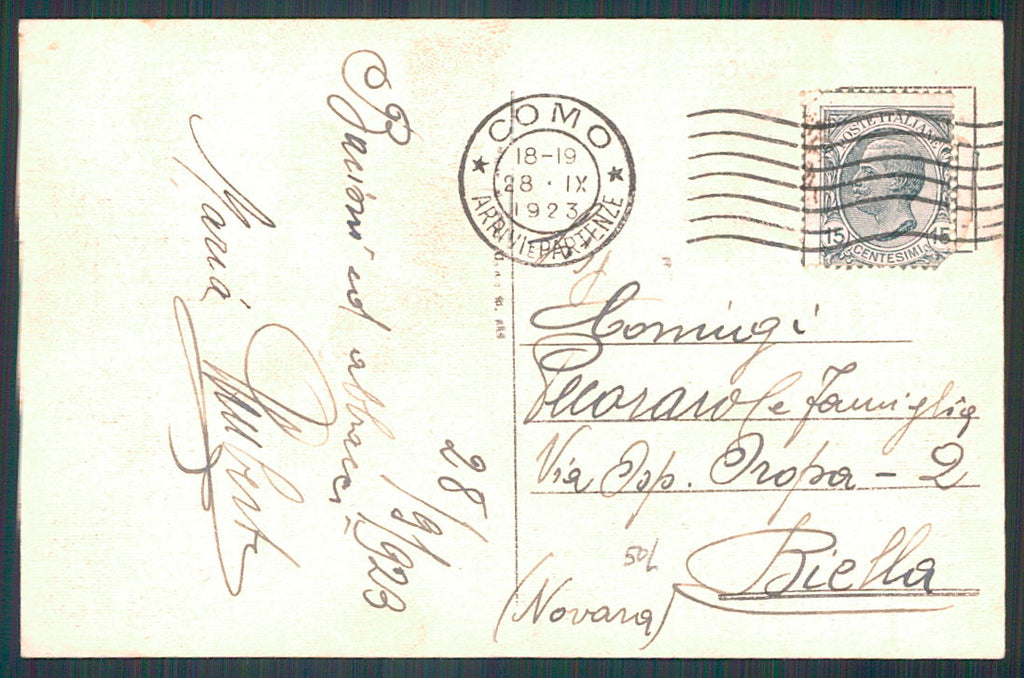 Bacioni ed abbracci
28/9/923
Maria
COMO
18-19
28 · IX
1923
ARRIVI E PARTENZE
POSTE ITALIANE
15 15
CENTESIMI
Coniugi
Pecoraro e Famiglia
Via Osp. Oropa - 2
Biella
(Novara)